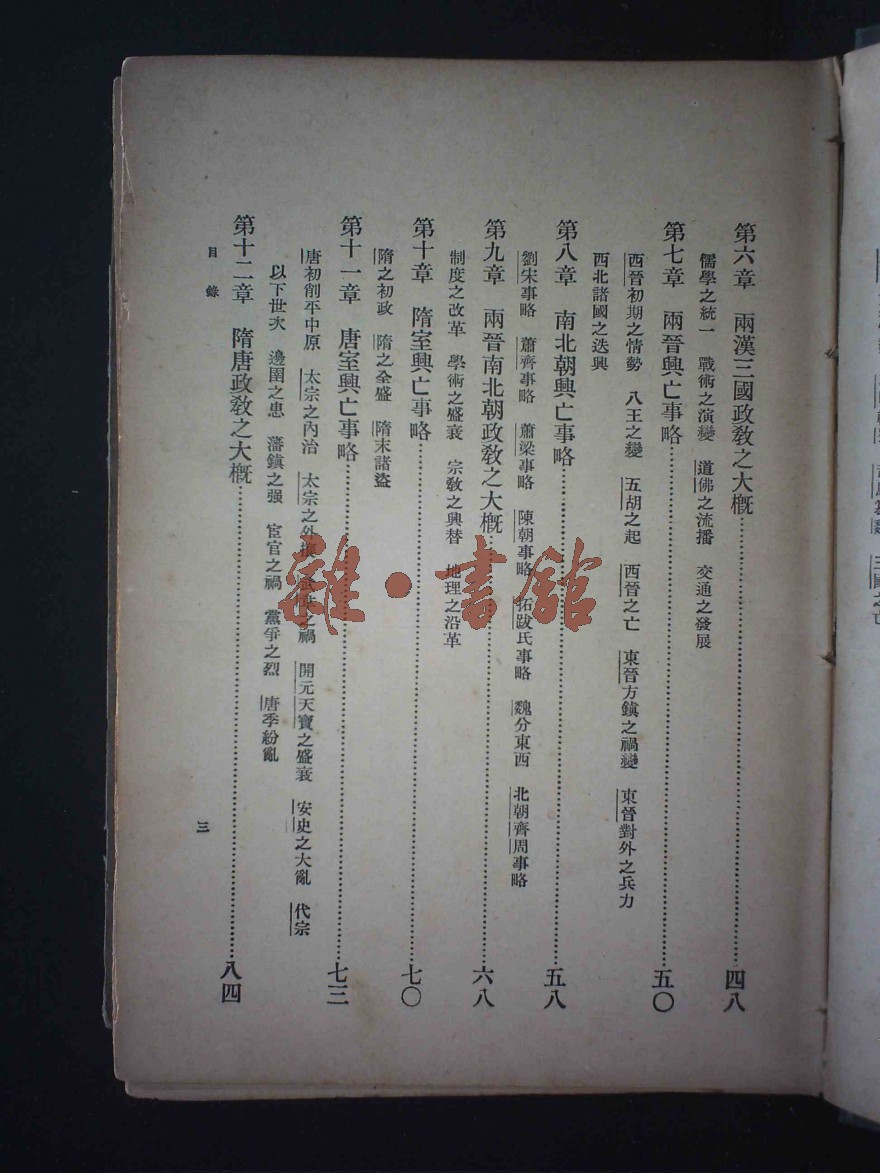 第六章　兩漢三國政敎之大槪……四八
儒學之統一　戰術之演變　道佛之流播　交通之發展
第七章　兩晉興亡事略……五〇
西晉初期之情勢　八王之變　五胡之起　西晉之亡　東晉方鎭之禍變　東晉對外之兵力
西北諸國之迭興
第八章　南北朝興亡事略……五八
劉宋事略　蕭齊事略　蕭梁事略　陳朝事略　拓跋氏事略　魏分東西　北朝齊周事略
第九章　兩晉南北朝政敎之大槪……六八
制度之改革　學術之盛衰　宗敎之興替　地理之沿革
第十章　隋室興亡事略……七〇
隋之初政　隋之全盛　隋末諸盜
第十一章　唐室興亡事略……七三
唐初削平中原　太宗之內治　太宗之外　之禍　開元天寶之盛衰　安史之大亂　代宗
以下世次　邊圉之患　藩鎭之强　宦官之禍　黨爭之烈　唐季紛亂
第十二章　隋唐政敎之大槪……八四
目錄
三
雜·書館